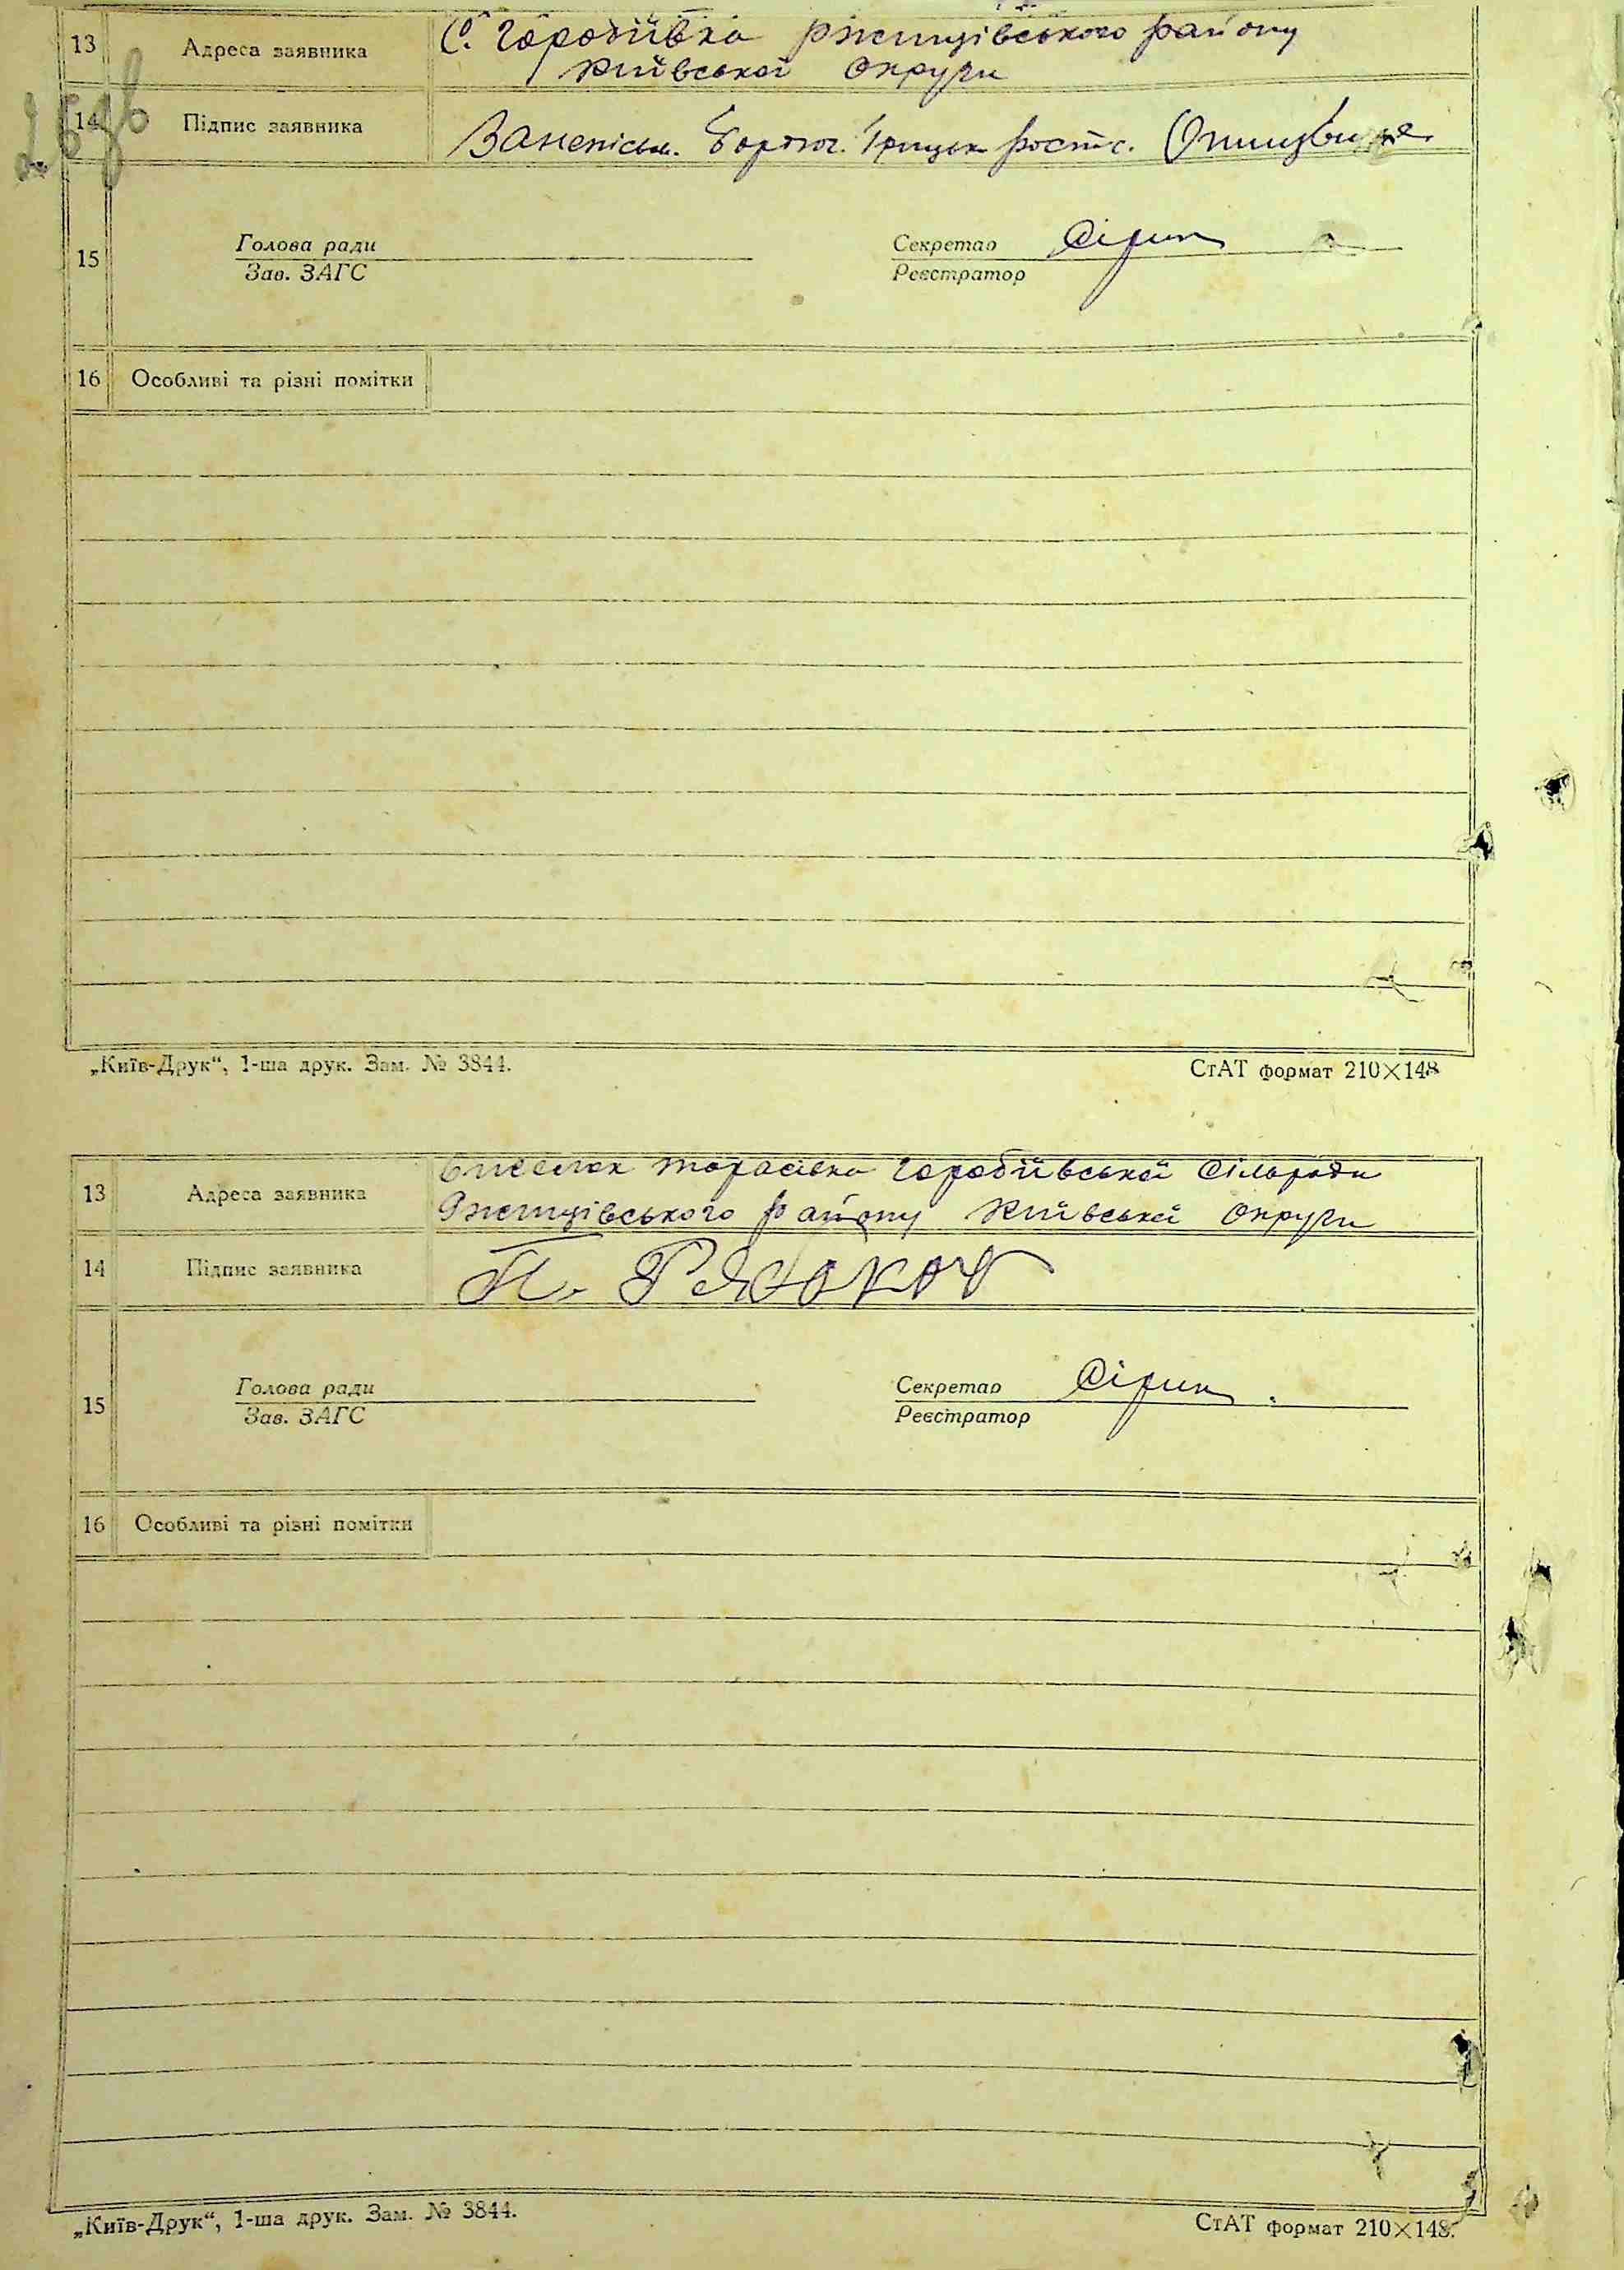 13 Адреса заявника С. Горобіївка Ржищівського району
Київської Округи
14 Підпис заявника За неписьм. Грицьк розпис.
15 Голова ради Секретар Сірик
Зав. ЗАГС Реєстратор
16 Особливі та різні помітки
„Київ-Друк“, 1-ша друк. Зам. № 3844. СтАТ формат 210×148
13 Адреса заявника Виселок Тарасівка Горобіївської Сільради
Ржищівського району Київської Округи
14 Підпис заявника П.
15 Голова ради Секретар Сірик
Зав. ЗАГС Реєстратор
16 Особливі та різні помітки
„Київ-Друк“, 1-ша друк. Зам. № 3844. СтАТ формат 210×148.